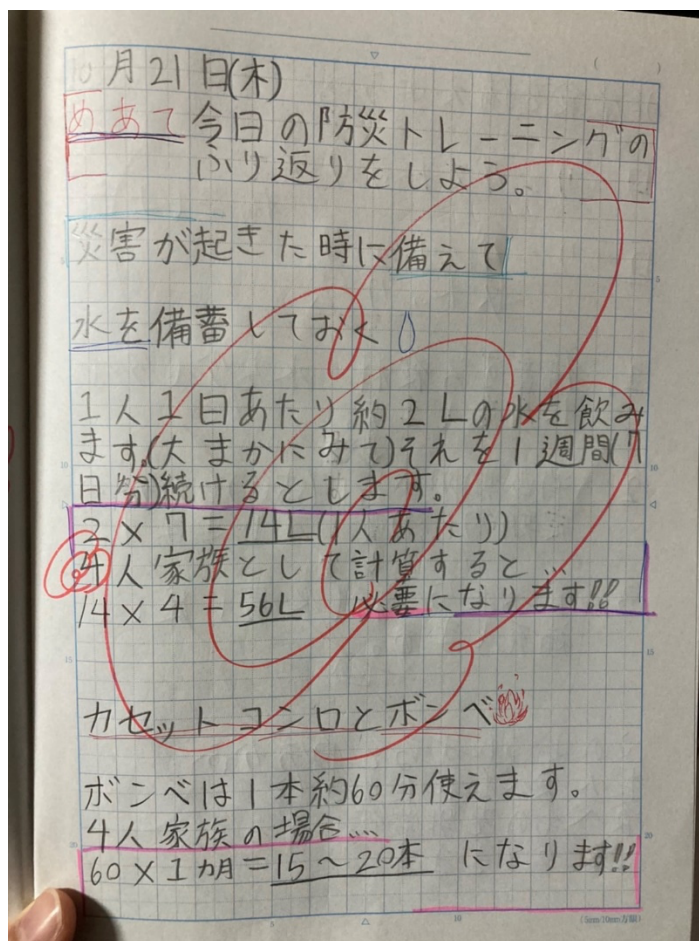 10月21日(木)
めあて 今日の防災トレーニングの
ふり返りをしよう。
災害が起きた時に備えて
水を備蓄しておく
1人1日あたり約2Lの水を飲み
ます。(大まかにみて)それを1週間(7
日分)続けるとします。
2×7=14L(1人あたり)
4人家族として計算すると…
14×4=56L 必要になります!!
カセットコンロとボンベ
ボンベは1本約60分使えます。
4人家族の場合....
60×1カ月=15~20本 になります!!
(5mm/10mm方眼)